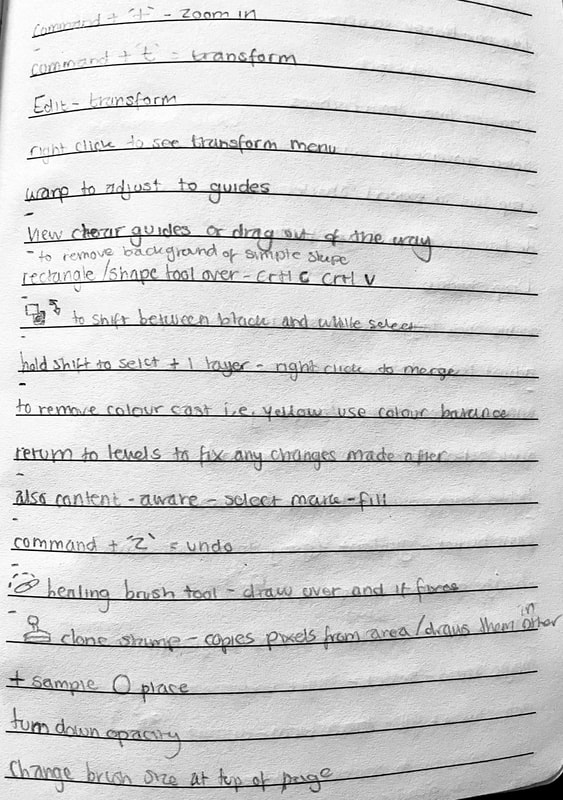 command + '+' - zoom in
command + 't' = transform
Edit - transform
right click to see transform menu
warp to adjust to guides
View clear guides or drag out of the way
- to remove background of simple shape
rectangle / shape tool over - crtl C crtl V
to shift between black and while select
hold shift to selct + 1 layer - right click to merge
to remove colour cast i.e. yellow use colour balance
return to levels to fix any changes made after
also content - aware - select mark - fill
command + 'Z' = undo
healing brush tool - draw over and it fixes
clone stump - copies pixels from area / draws them in other
+ sample O place
turn down opacity
Change brush size at top of page